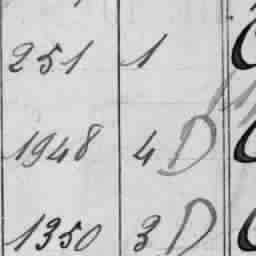 251 1
1948 4 D
1350 3 D